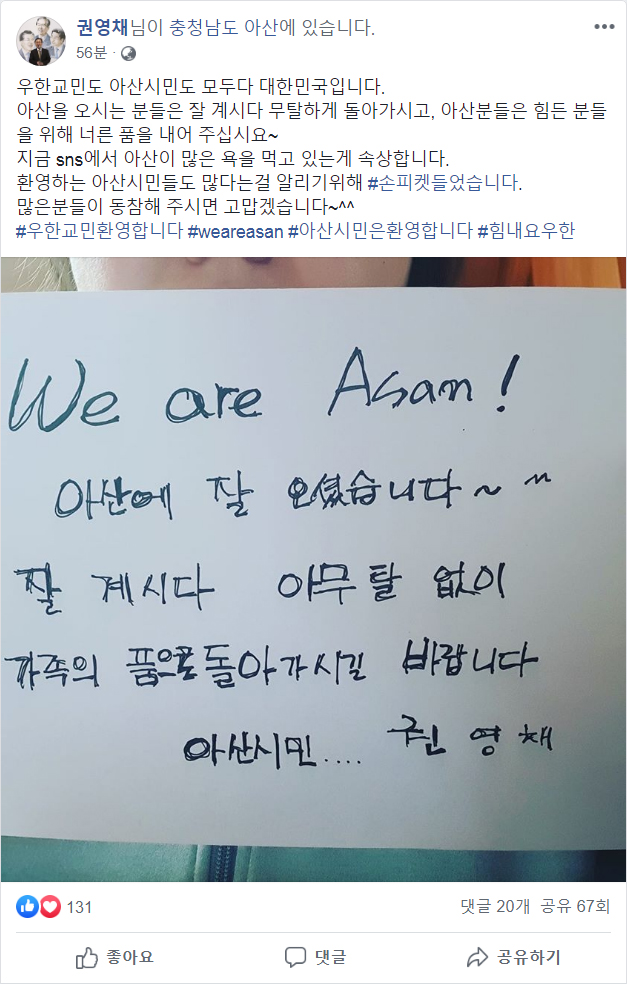 권영채님이 충청남도 아산에 있습니다.
56분 ·
우한교민도 아산시민도 모두다 대한민국입니다.
아산을 오시는 분들은 잘 계시다 무탈하게 돌아가시고, 아산분들은 힘든 분들
을 위해 너른 품을 내어 주십시요~
지금 sns에서 아산이 많은 욕을 먹고 있는게 속상합니다.
환영하는 아산시민들도 많다는걸 알리기위해 #손피켓들었습니다.
많은분들이 동참해 주시면 고맙겠습니다~^^
#우한교민환영합니다 #weareasan #아산시민은환영합니다 #힘내요우한
We are Asan!
아산에 잘 오셨습니다~ ^^
잘 계시다 아무탈 없이
가족의 품으로 돌아가시길 바랍니다
아산시민.... 권영채
131
댓글 20개 공유 67회
좋아요 댓글 공유하기